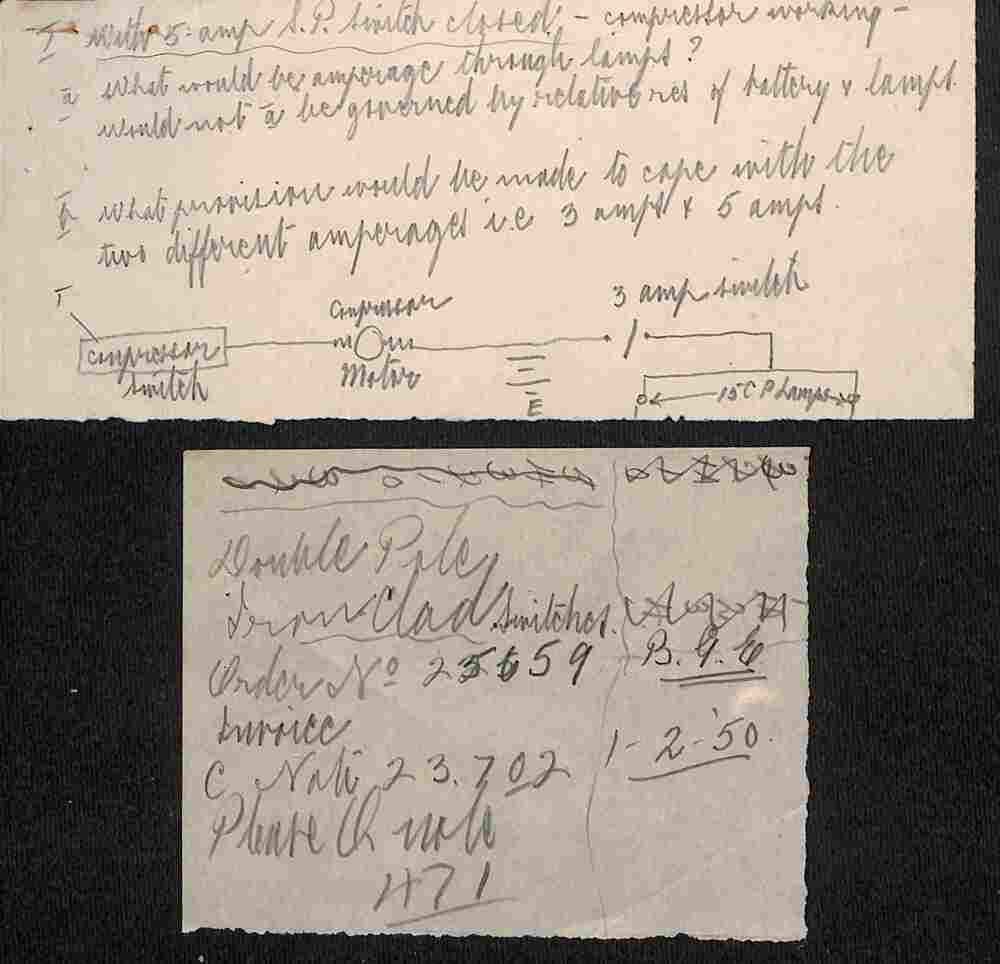 I With 5-amp S.P. switch closed! - compressor working -
a What would be amperage through lamps?
Would not a be governed by relative res of battery & lamps
b What provision would be made to cope with the
two different amperages i.e 3 amps & 5 amps.
I
3 amp switch
Compressor
Compressor
Switch
Motor
E
15 C P Lamps
Double Pole
Iron Clad Switches.
Order No 25659
B. G. E
Invoice
C Note 23.702
1-2-'50.
Please Ch note
471